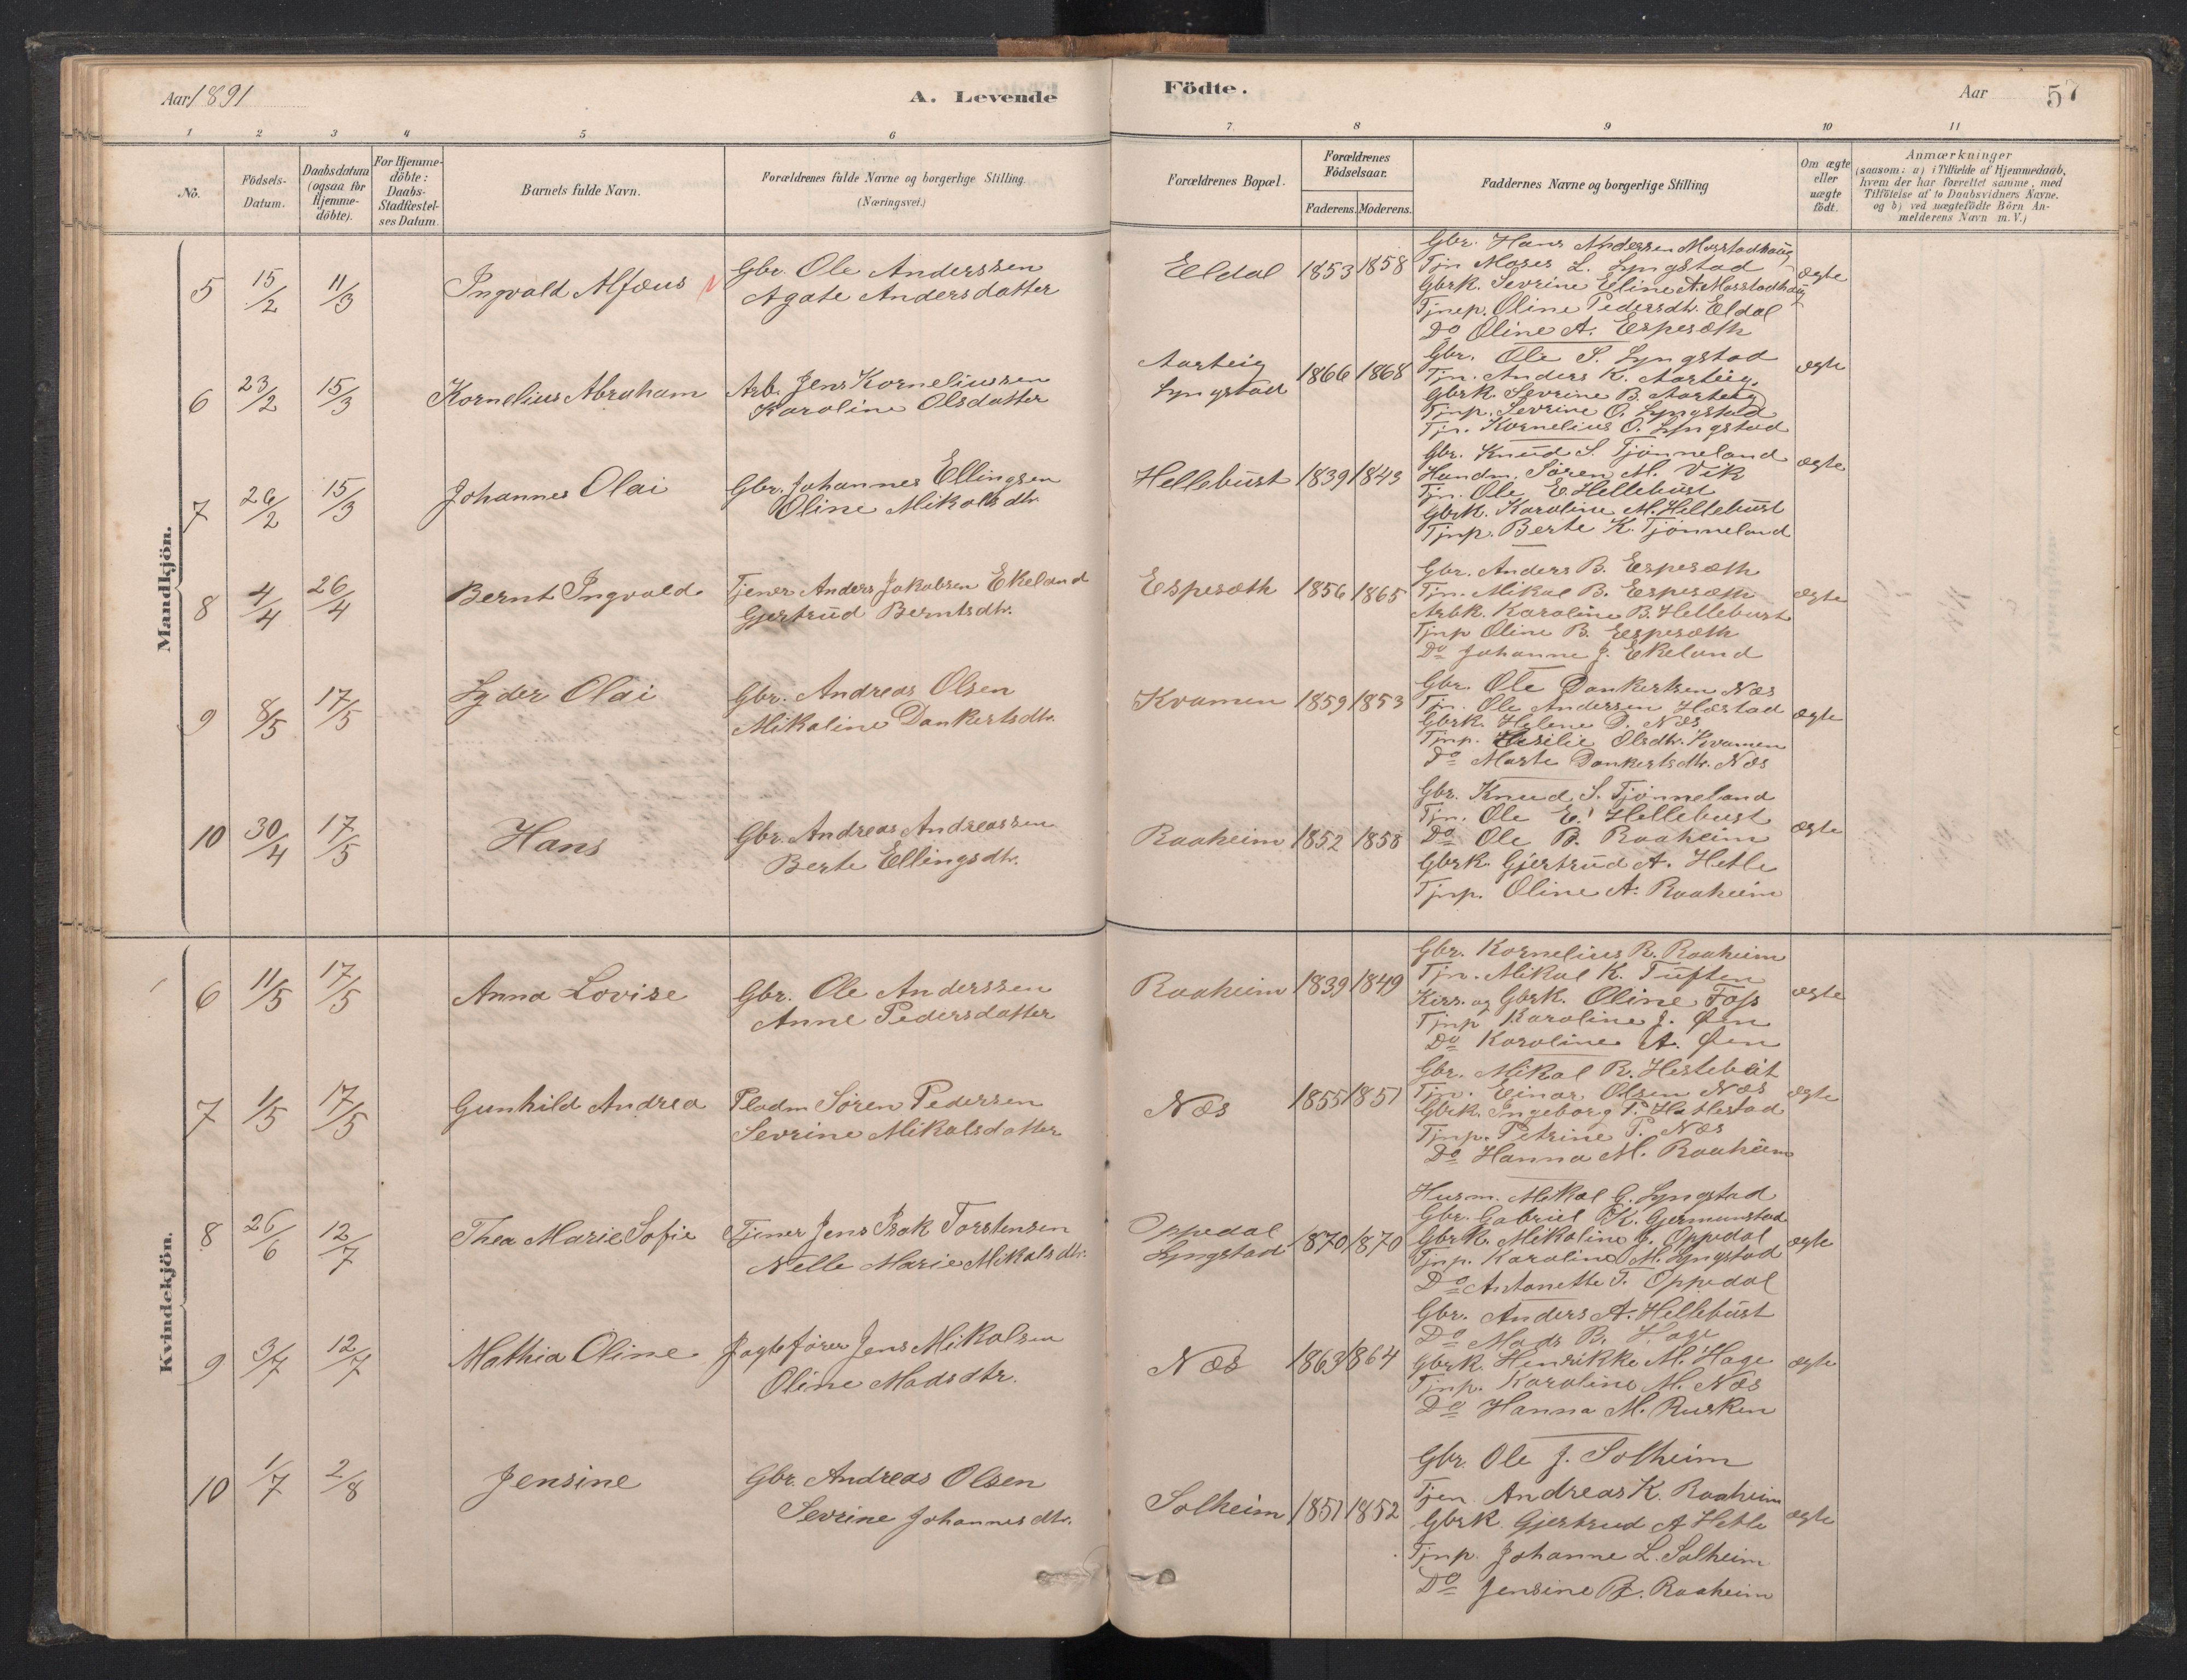 Aar 1891
A. Levende
Födte.
Aar 57
1 2 3 4 5 6 7. 8 9 10 11
No.
Födsels-Datum.
Daabsdatum (ogsaa for Hjemme-döbte).
For Hjemme-döbte: Daabs-Stadfæstel-ses Datum.
Barnets fulde Navn.
Forældrenes fulde Navne og borgerlige Stilling. (Næringsvei.)
Forældrenes Bopæl.
Forældrenes Födselsaar.
Faderens. Moderens.
Faddernes Navne og borgerlige Stilling
Om ægte eller uægte födt.
Anmærkninger
(saasom: a) i Tilfælde af Hjemmedaab, hvem der har forrettet samme, med Tilföielse af to Daabsvidners Navne. og b) ved uægtefödte Börn Anmelderens Navn m. V.)
Mandkjön.
5 15/2 11/3 Ingvald Alfæus
Gbr. Ole Anderssen
Agate Andersdatter
Eldal 1853 1858
Gbr. Hans Anderssen Masstadhaug
Tjn Moses L. Lyngstad
Gbrk. Sevrine Eline A. Masstadhaug
Tjnep. Oline Pedersdtr. Eldal
Do Oline A. Espesæth
ægte
6 23/2 15/3 Kornelius Abraham
Arb. Jens Korneliussen
Karoline Olsdatter
Aarteig
Lyngstad 1866 1868
Gbr. Ole S. Lyngstad
Tjn. Anders K. Aarteig.
Gbrk. Sevrine B. Aarteig
Tjnp. Sevrine O. Lyngstad
Tjn. Kornelius O. Lyngstad
ægte
7 26/2 15/3 Johannes Olai
Gbr. Johannes Ellingsen
Oline Mikalsdtr.
Hellebust 1839 1843
Gbr. Knud S. Tjønneland
Handm. Søren M. Vik
Tjn. Ole E. Hellebust
Gbrk. Karoline M. Hellebust
Tjnp. Berte K. Tjønneland
ægte
8 4/4 26/4 Bernt Ingvald
Tjener Anders Jakobsen Ekeland
Gjertrud Berntsdtr.
Espesæth 1856 1865
Gbr. Anders B. Espesæth
Tjn. Mikal B. Espesæth
Arbk. Karoline B. Hellebust
Tjnp Oline B. Espesæth
Do Johanne J. Ekeland
ægte
9 8/5 17/5 Lyder Olai
Gbr. Andreas Olsen
Mikaline Dankertsdtr.
Kvamen 1859 1853
Gbr. Ole Dankertsen Næs
Tjn. Ole Anderssen Hæstad
Gbrk. Helene D. Næs
Tjnp. Olsdtr. Kvamen
Do Marte Dankertsdtr. Næs
ægte
10 30/4 17/5 Hans
Gbr. Andreas Andreassen
Berte Ellingsdtr.
Raaheim 1852 1858
Gbr. Knud S. Tjønneland
Tjn. Ole E. Hellebust
Do Ole B. Raaheim
Gbrk. Gjertrud A. Hetle
Tjnp. Oline A. Raaheim
ægte
Kvindekjön.
6 11/5 17/5 Anna Lovise
Gbr. Ole Anderssen
Anne Pedersdatter
Raaheim 1839 1849
Gbr. Kornelius R. Raaheim
Tjn. Mikal K. Tuften
og Gbrk. Oline Foss
Tjnp Karoline J. Øen
Do Karoline A. Øen
ægte
7 1/5 17/5 Gunhild Andrea
Pladm Søren Pedersen
Sevrine Mikalsdatter
Næs 1855 1851
Gbr. Mikal R.
Tjn. Einar Olsen Næs
Gbrk. Ingeborg T. Hatlestad
Tjnp. Petrine P. Næs
Do Hanna M. Raaheim
ægte
8 26/6 12/7 Thea Marie Sofie
Tjener Jens Isak Torstensen
Nelle Marie Mikalsdtr.
Oppedal
Lyngstad 1870 1870
Husm. Mikal G. Lyngstad
Gbr. Gabriel K. Gjermunstad
Gbrk. Mikaline G. Oppedal
Tjnp. Karoline M. Lyngstad
Do Antonette T. Oppedal
ægte
9 3/7 12/7 Mathia Oline
Jagtefører Jens Mikalsen
Oline Madsdtr.
Næs 1863 1864
Gbr. Anders A. Hellebust
Do Mads B. Hage
Gbrk. Henrikke M. Hage
Tjnp. Karoline M. Næs
Do Hanna M. Rusken
ægte
10 1/7 2/8 Jensine
Gbr. Andreas Olsen
Sevrine Johannesdtr.
Solheim 1851 1852
Gbr. Ole J. Solheim
Tjen Andreas K. Raaheim
Gbrk. Gjertrud A Hetle
Tjnp. Johanne L. Solheim
Do Jensine B. Raaheim
ægte